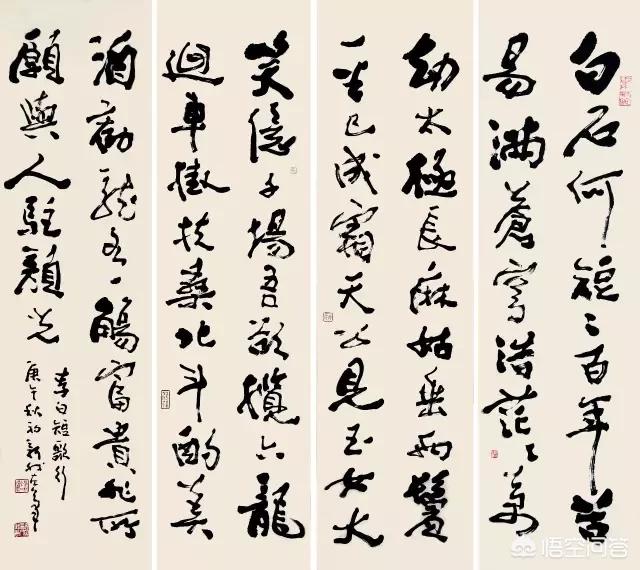 白石何短〻百年苦
易滿蒼穹浩茫〻萬
劫太極長麻姑垂兩鬢
一半已成霜天公見玉女大
笑億千場吾欲攬六龍
迴車挂扶桑北斗酌美
酒勸龍各一觴富貴非所
願與人駐顏光
李白短歌行
庚午秋初
悟空问答